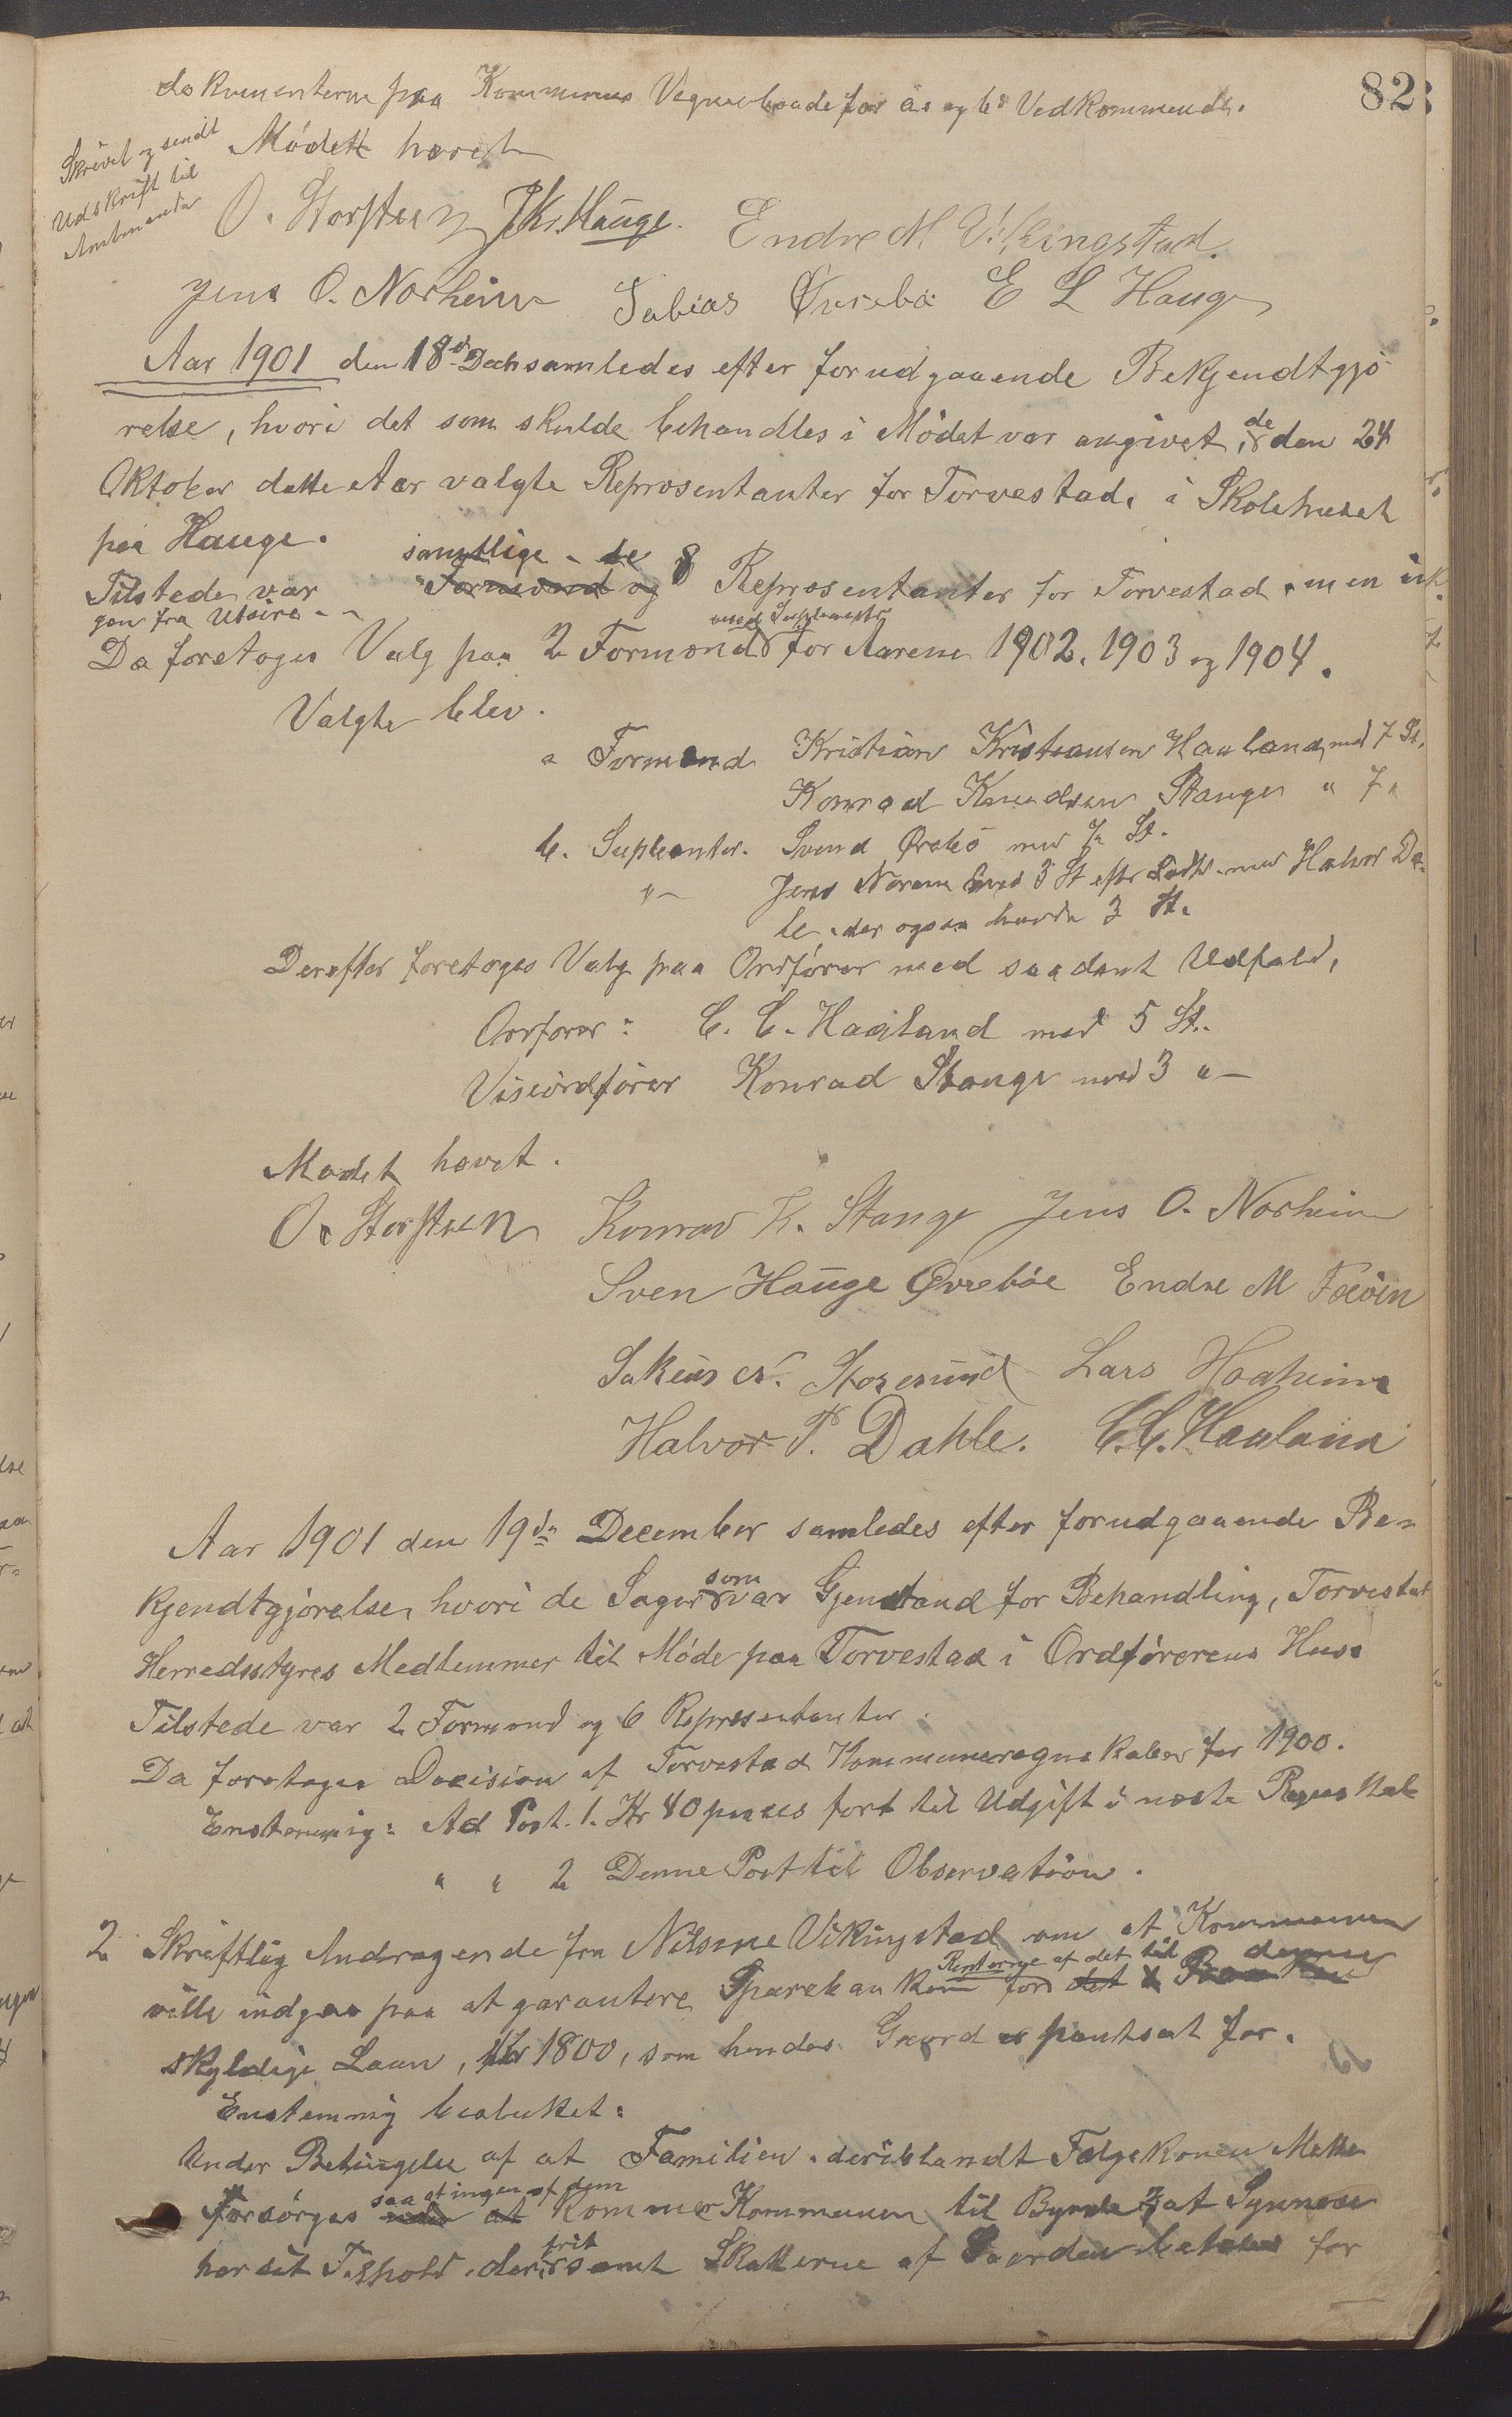 82
dokumenterne paa Kommunens Vegne baade for a's og b's Vedkommende.
Skrevet og sendt
Udskrift til
Amtmanden
Mødet hævet
O. Storsteen J Kr. Hauge. Endre M Vikingstad.
Jens O. Norheim Tobias Øvrebø E L Hauge
Aar 1901 den 18de Decb samledes efter forudgaaende Bekjendtgjø
relse, hvori det som skulde behandles i Mødet var angivet, de den 24
Oktober dette Aar valgte Repræsentanter for Torvestad, i Skolehuset
paa Hauge.
Tilstede var samtlige de 8 Repræsentanter for Torvestad, men in
gen fra Utsire
Da foretoges Valg paa 2 Formænd med Suplenter for Aarene 1902, 1903 og 1904.
Valgte blev.
a Formænd Kristian Kristiansen Haaland med 7 St.
Konrad Knudsen Stange " 7 "
b. Supleanter. Svend Øvrebø med 7 St.
"– Jens Norem med 3 St efter Lodtr. med Halvor Da-
le, der ogsaa havde 3 St.
Derefter foretoges Valg paa Ordfører med saadant Udfald,
Ordfører: C. C. Haaland med 5 St.
Viseordfører Konrad Stange med 3 "–
Mødet hævet.
O. Storsteen Konrad K. Stange Jens O. Norheim
Sven Hauge Øvrebøe Endre M Føien
Sakeus N. Storesund Lars Haaheim
Halvor P. Dahle. C.C. Haaland
Aar 1901 den 19de December samledes efter forudgaaende Be-
kjendtgjørelse, hvori de Sager som var Gjenstand for Behandling, Torvestad
Herredsstyres Medlemmer til Møde paa Torvestad i Ordførerens Hus.
Tilstede var 2 Formænd og 6 Repræsentanter.
Da foretoges Decision af Torvestad Kommuneregnskaber for 1900.
Enstemmig: Ad Post. 1. Kr 40 passes ført til Udgift i næste Regnskab
" " 2 Denne Post til Observation.
2 Skriftlig Andragende fra Nilsine Vikingstad om at Kommunen
vilde indgaa paa at garantere Sparebanken for Renterne af det til denne
skyldige Laan, Kr 1800, som hendes Gaard er pantsat for.
Enstemmig besluttet:
Under Betingelse af at Familien, deriblandt Følgekonen Mette
forsørges saa at ingen af dem kommer Kommunen til Byrde, og at Synneve
har sit Tilhold der frit samt Skatterne af Gaarden betales for